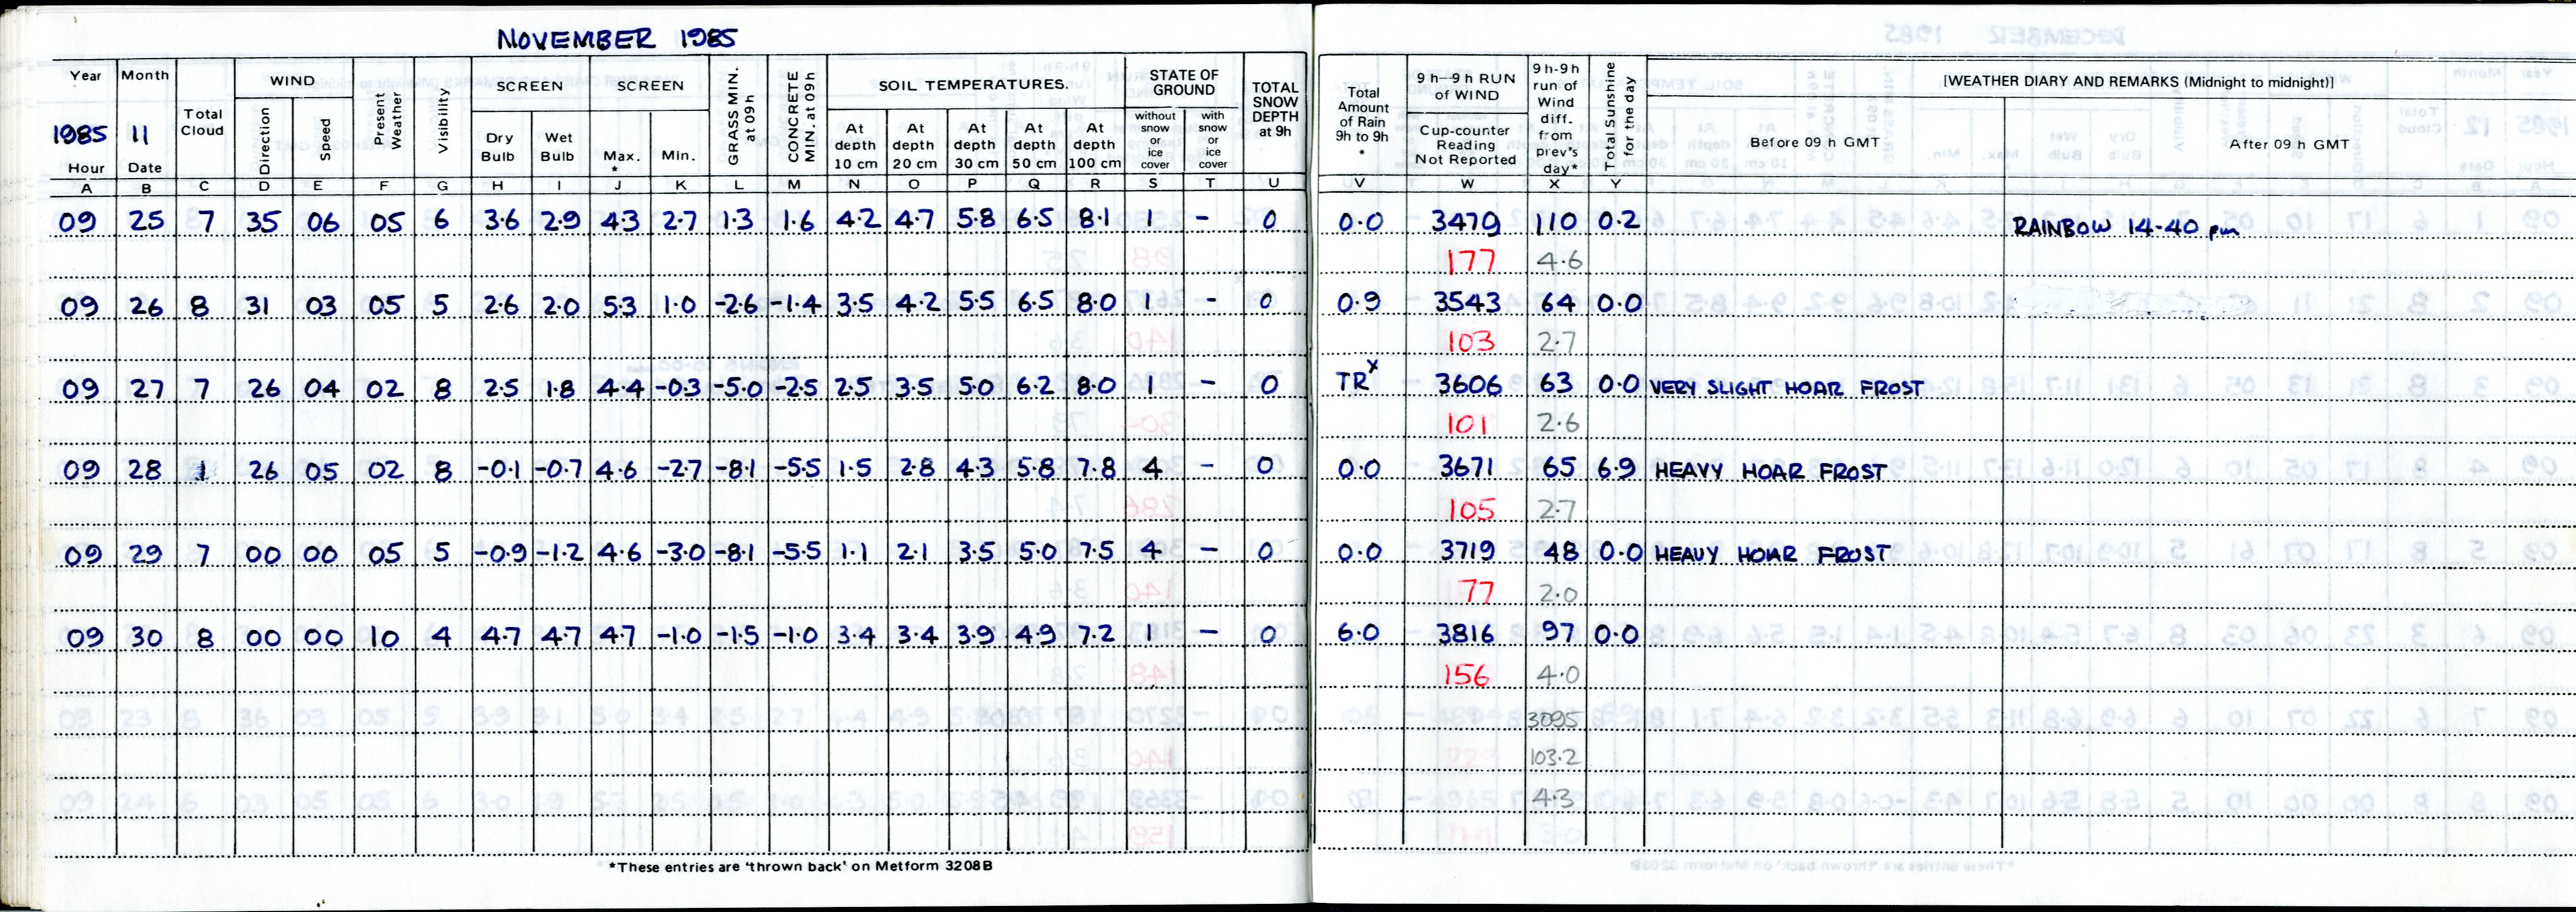 NOVEMBER 1985
Year Month Total Cloud WIND Direction Speed Present Weather Visibility SCREEN Dry Bulb Wet Bulb SCREEN Max. * Min. GRASS MIN. at 09h CONCRETE MIN. at 09h SOIL TEMPERATURES. At depth 10 cm At depth 20 cm At depth 30 cm At depth 50 cm At depth 100 cm STATE OF GROUND without snow or ice cover with snow or ice cover TOTAL SNOW DEPTH at 9h Total Amount of Rain 9h to 9h * 9 h—9 h RUN of WIND Cup-counter Reading Not Reported 9 h-9h run of Wind diff. from prev's day* Total Sunshine for the day [WEATHER DIARY AND REMARKS (Midnight to midnight)] Before 09 h GMT After 09 h GMT
1985 11
Hour Date
A B C D E F G H I J K L M N O P Q R S T U V W X Y
09 25 7 35 06 05 6 3.6 2.9 4.3 2.7 1.3 1.6 4.2 4.7 5.8 6.5 8.1 1 - 0 0.0 3479 110 0.2 RAINBOW 14-40 pm
177 4.6
09 26 8 31 03 05 5 2.6 2.0 5.3 1.0 -2.6 -1.4 3.5 4.2 5.5 6.5 8.0 1 - 0 0.9 3543 64 0.0
103 2.7
09 27 7 26 04 02 8 2.5 1.8 4.4 -0.3 -5.0 -2.5 2.5 3.5 5.0 6.2 8.0 1 - 0 TRx 3606 63 0.0 VERY SLIGHT HOAR FROST
101 2.6
09 28 1 26 05 02 8 -0.1 -0.7 4.6 -2.7 -8.1 -5.5 1.5 2.8 4.3 5.8 7.8 4 - 0 0.0 3671 65 6.9 HEAVY HOAR FROST
105 2.7
09 29 7 00 00 05 5 -0.9 -1.2 4.6 -3.0 -8.1 -5.5 1.1 2.1 3.5 5.0 7.5 4 - 0 0.0 3719 48 0.0 HEAVY HOAR FROST
77 2.0
09 30 8 00 00 10 4 4.7 4.7 4.7 -1.0 -1.5 -1.0 3.4 3.4 3.9 4.9 7.2 1 - 0 6.0 3816 97 0.0
156 4.0
3095
103.2
4.3
*These entries are 'thrown back' on Metform 3208B